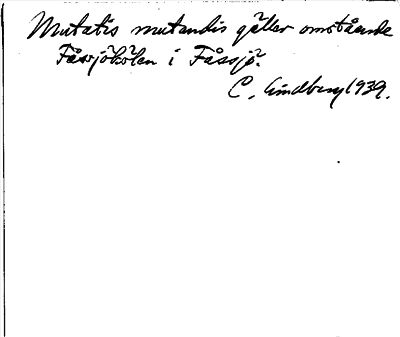 Mutatis mutandis gäller omstående
Fåssjöhölen i Fåssjö.
C. Lindberg 1939.